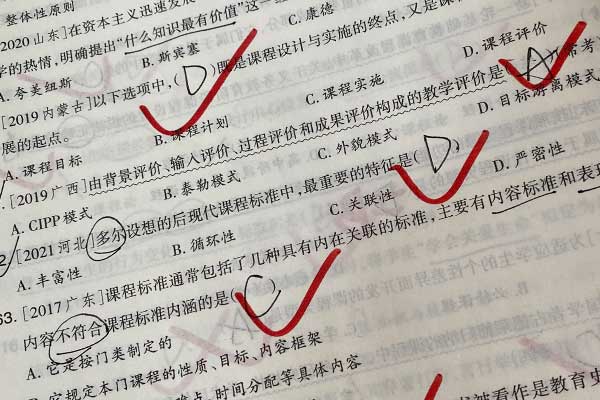 整体性原则
C. 康德
[2020山东]在资本主义迅速发展
学的热情，明确提出“什么知识最有价值”这一
A. 夸美纽斯
B. 斯宾塞
D. 课程评价
[2019内蒙古]以下选项中，(D)既是课程设计与实施的终点，又是课
展的起点。
A. 课程目标
B. 课程计划
C. 课程实施
[2019广西]由背景评价、输入评价、过程评价和成果评价构成的教学评价是(A)
常考
A. CIPP模式
B. 泰勒模式
C. 外貌模式
D. 目标游离模式
[2021河北]多尔设想的后现代课程标准中，最重要的特征是(D)
A. 丰富性
B. 循环性
C. 关联性
D. 严密性
63. [2017广东]课程标准通常包括了几种具有内在关联的标准，主要有内容标准和表现
内容不符合课程标准内涵的是(C)
A. 它是按门类制定的
它规定本门课程的性质、目标、内容框架
时间分配等具体内容
被看作是教育史